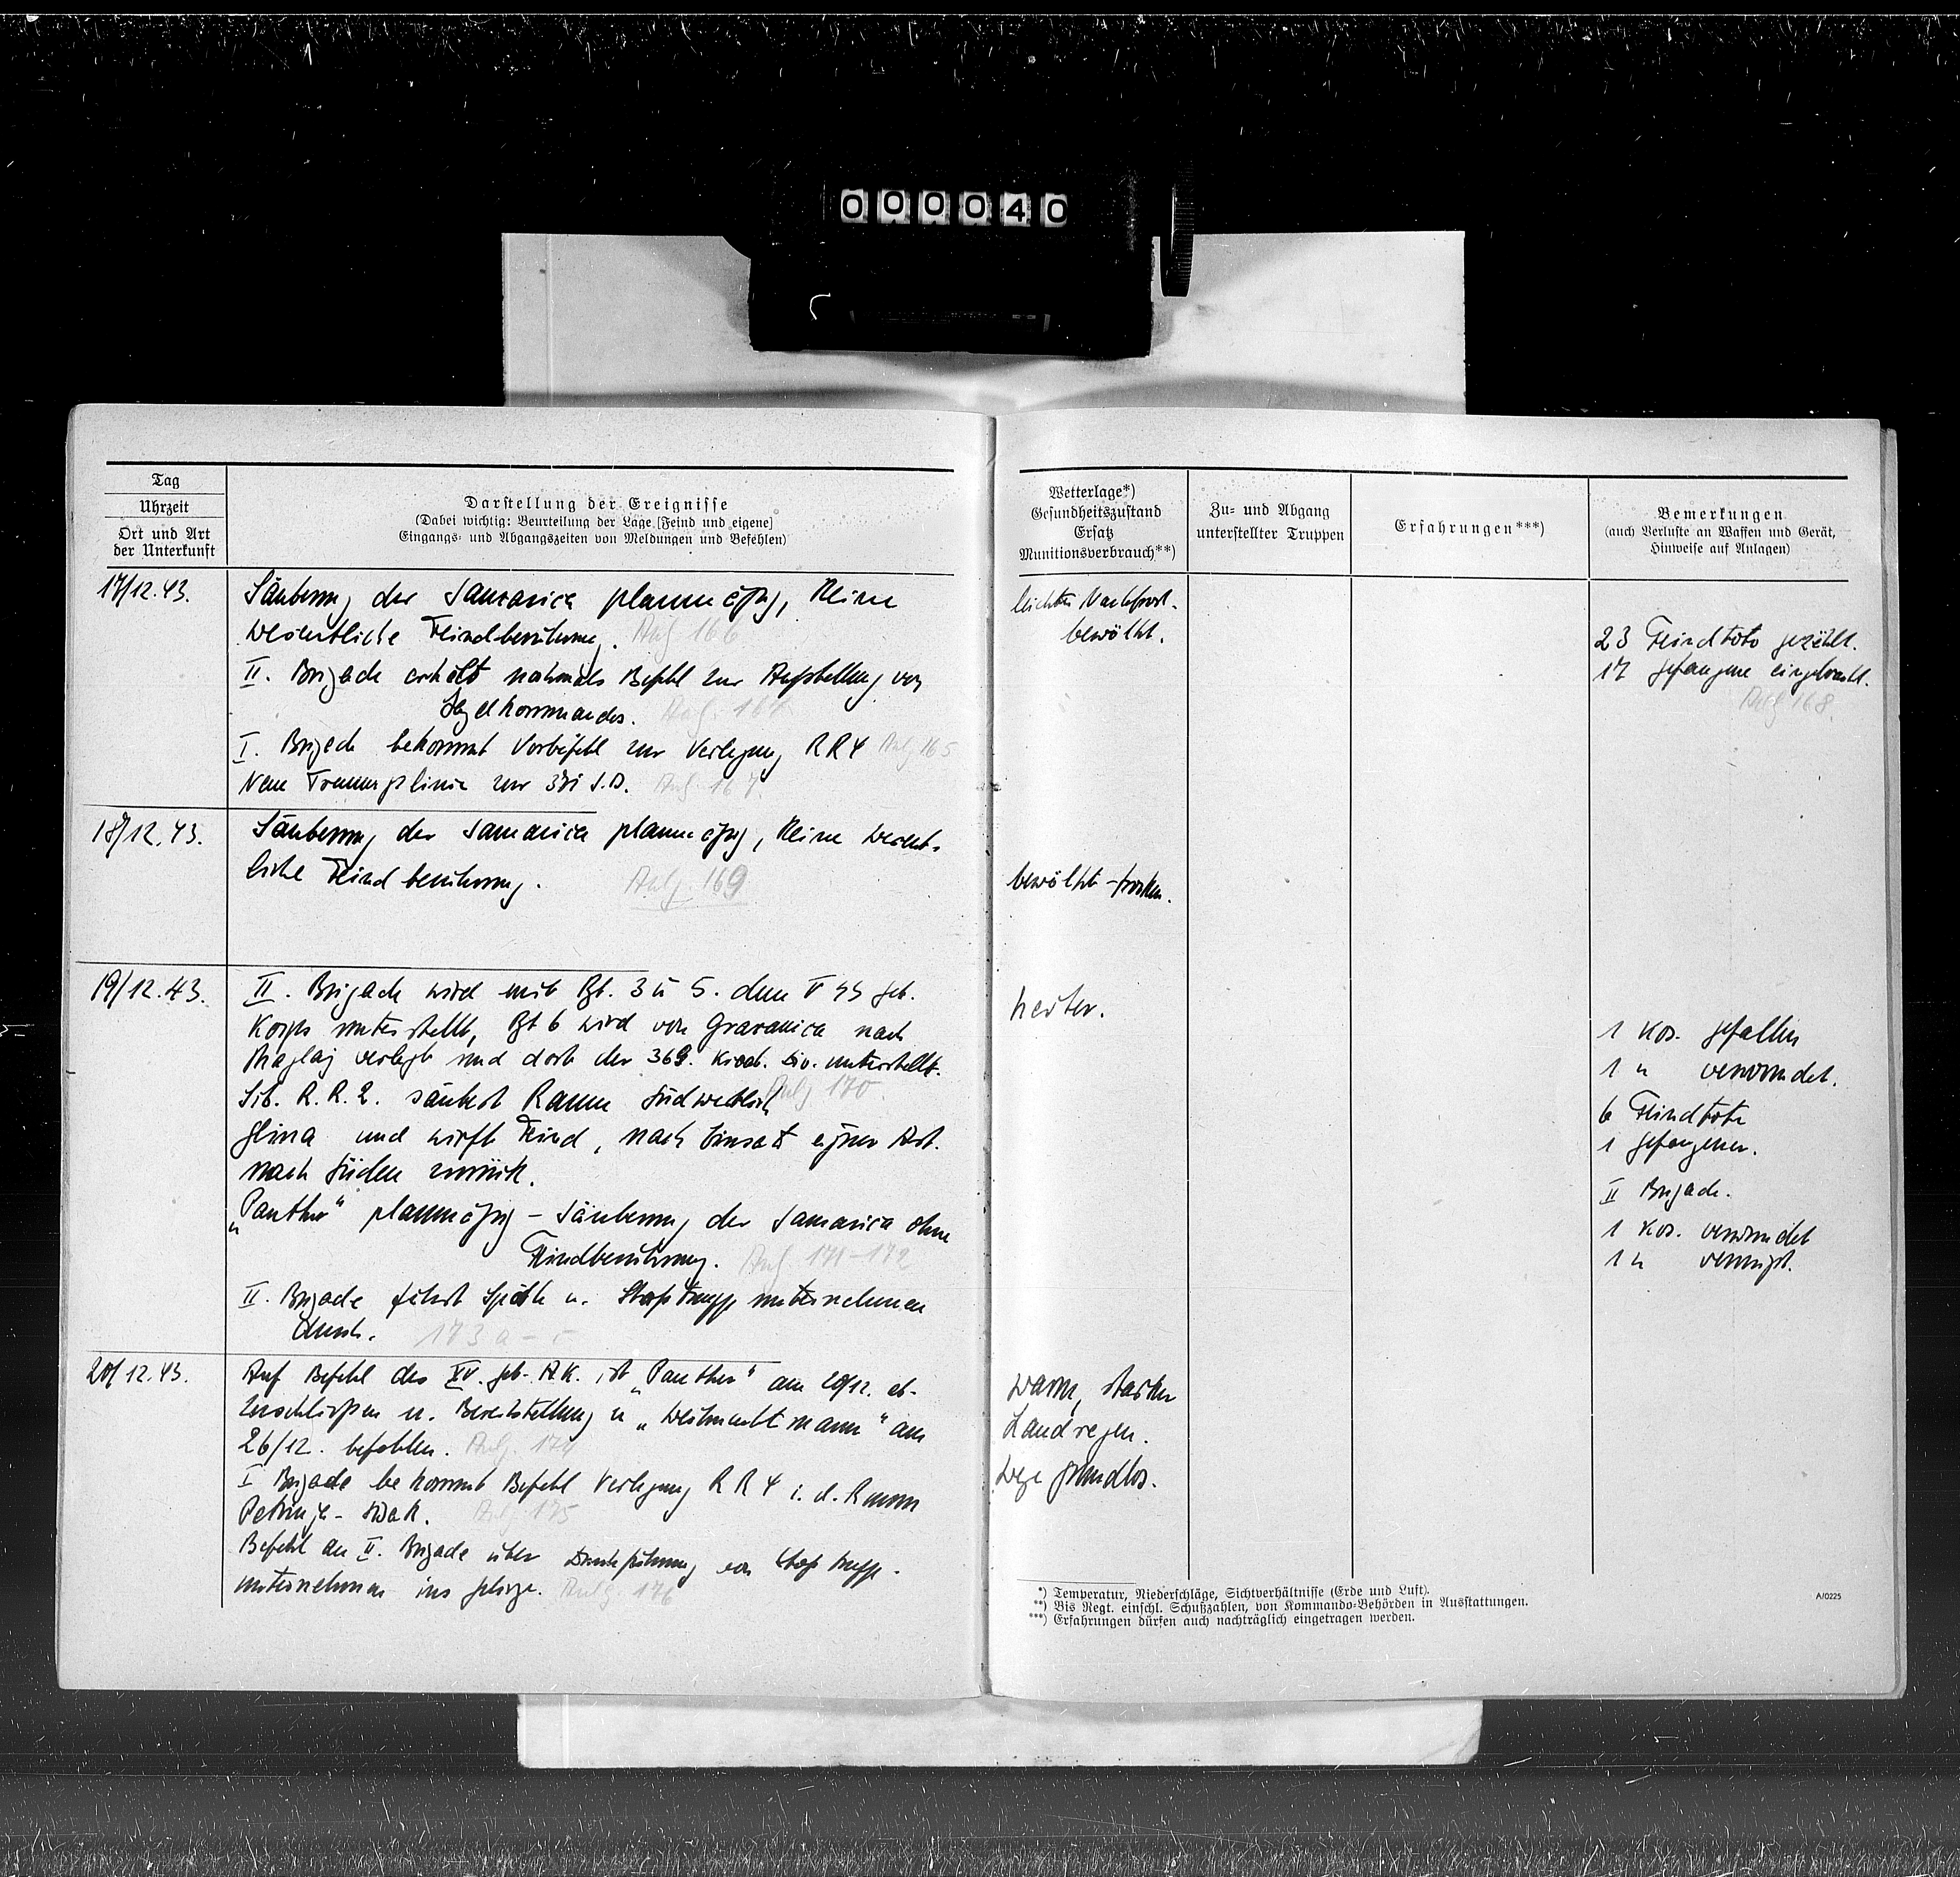 000040
Tag
Uhrzeit
Ort und Art
der Unterkunft
Darstellung der Ereignisse
(Dabei wichtig: Beurteilung der Lage [Feind und eigene]
Eingangs- und Abgangszeiten von Meldungen und Befehlen)
17/12.43.
Säuberung der Samarica planmäßig, keine
wesentliche Feindberührung. Anl. 166
II. Brigade erhält nochmals Befehl zur Aufstellung von
Jagdkommandos. Anl. 167
I. Brigade bekommt Vorbefehl zur Verlegung RR4 Anl. 165
Neue Trennungslinie zur 371 I.D. Anl. 167
18/12.43.
Säuberung der Samarica planmäßig, keine wesent-
liche Feindberührung. Anlg. 169
19/12.43.
II. Brigade wird mit Rgt. 3 u 5. dem V SS Geb.
Korps unterstellt, Rgt 6 wird von Gracanica nach
Maglaj verlegt und dort der 369. kroat. Div. unterstellt.
Sib. R.R.2. säubert Raum südwestlich Anlg 170
Glina und wirft Feind, nach Einsatz eigner Art.
nach Süden zurück.
„Panther" planmäßig – Säuberung der Samarica ohne
Feindberührung. Anl. 171–172
II. Brigade führt Späh u. Stoßtruppunternehmen
durch. 173 a –
20/12.43.
Auf Befehl des XV. Geb. A.K. ist „Panther" am 20/12. ab-
zuschließen u. Bereitstellung zu „Weihnachtmann" am
26/12. befohlen. Anlg. 174
I Brigade bekommt Befehl Verlegung RR4 i. d. Raum
Petrinja – Sisak. Anlg. 175
Befehl an II. Brigade über Durchführung von Stoßtrupp-
unternehmen ins Gebirge. Anlg. 176
Wetterlage*)
Gesundheitszustand
Ersatz
Munitionsverbrauch**)
Zu- und Abgang
unterstellter Truppen
Erfahrungen***)
Bemerkungen
(auch Verluste an Waffen und Gerät,
Hinweise auf Anlagen)
leichter Nachtfrost.
bewölkt.
23 Feindtote gezählt.
17 Gefangene eingebracht.
Anlg 168.
bewölkt – trocken.
heiter.
1 Kos. gefallen
1 " verwundet.
6 Feindtote
1 Gefangener.
II Brigade.
1 Kos. verwundet
1 " vermißt.
warm, starker
Landregen.
Wege grundlos.
*) Temperatur, Niederschläge, Sichtverhältnisse (Erde und Luft).
**) Bis Regt. einschl. Schußzahlen, von Kommando-Behörden in Ausstattungen.
***) Erfahrungen dürfen auch nachträglich eingetragen werden.
A/0225